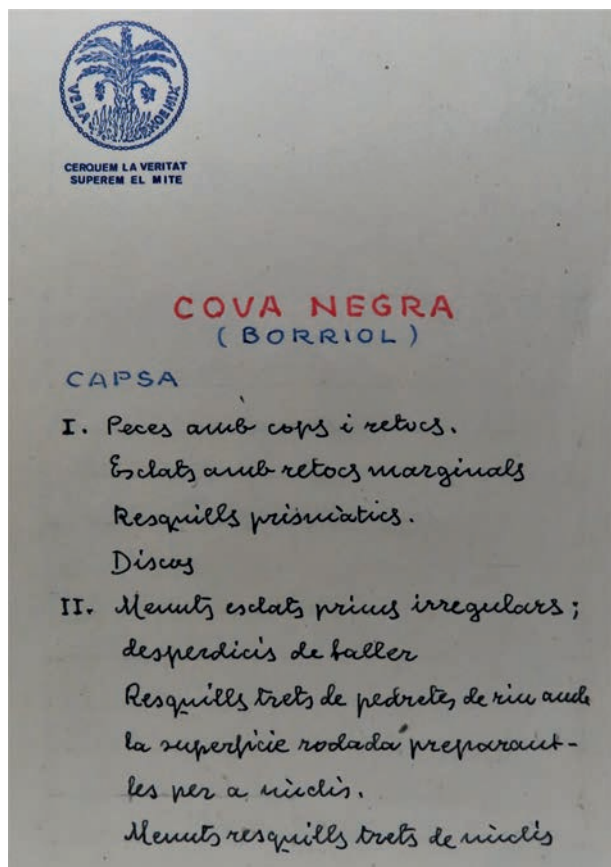 VERA PHOENIX
CERQUEM LA VERITAT
SUPEREM EL MITE
COVA NEGRA
(BORRIOL)
CAPSA
I. Peces amb cops i retocs.
Esclats amb retocs marginals
Resquills prismàtics.
Discos
II. Menuts esclats prims irregulars;
desperdicis de taller
Resquills trets de pedretes de riu amb
la superfície rodada preparant-
les per a nuclis.
Menuts resquills trets de nuclis